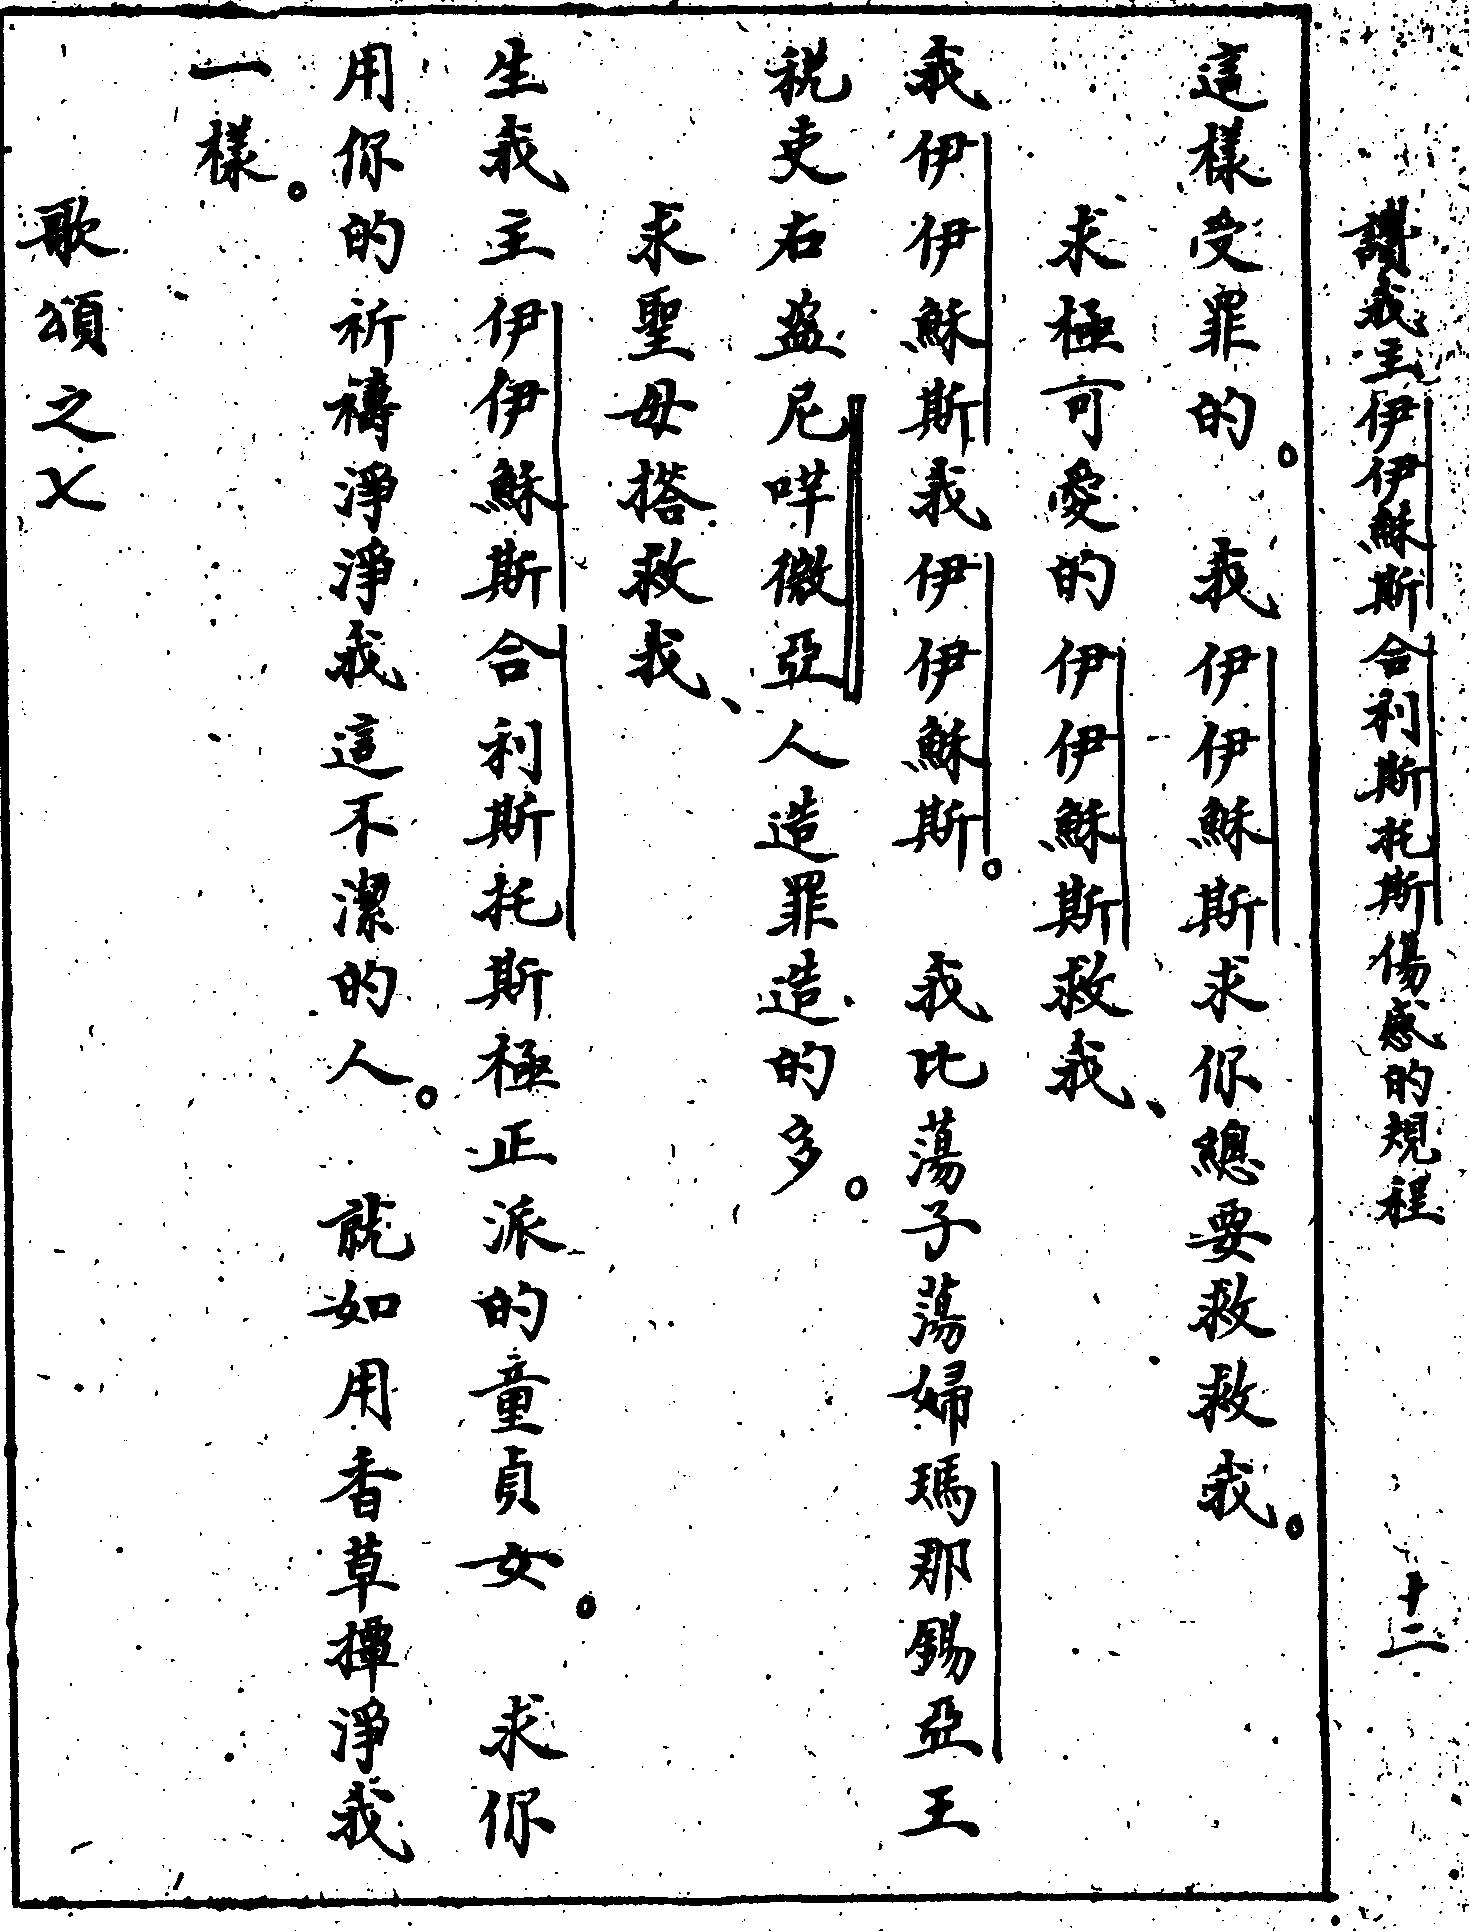 讚我主伊伊穌斯合利斯托斯傷感的規程　十二
這樣受罪的。我伊伊穌斯求你總要救救我。
求極可愛的伊伊穌斯救我、
我伊伊穌斯我伊伊穌斯。我比蕩子蕩婦瑪那錫亞王
稅吏右盜尼哶微亞人造罪造的多。
求聖母搭救我、
生我主伊伊穌斯合利斯托斯極正派的童貞女。求你
用你的祈禱淨淨我這不潔的人。就如用香草撢淨我
一樣。
歌頌之〤